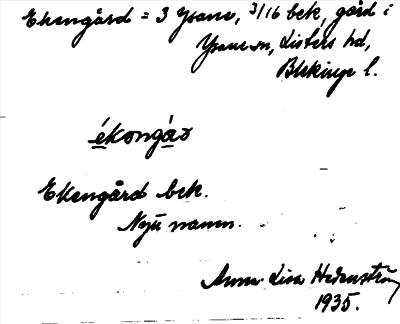 Ekengård = 3 Ysane, 3/16 bek, gård i
Ysane sn, Listers hd,
Blekinge l.
ékongár
Ekengård bek.
Nytt namn.
Anna-Lisa Hedenström
1935.